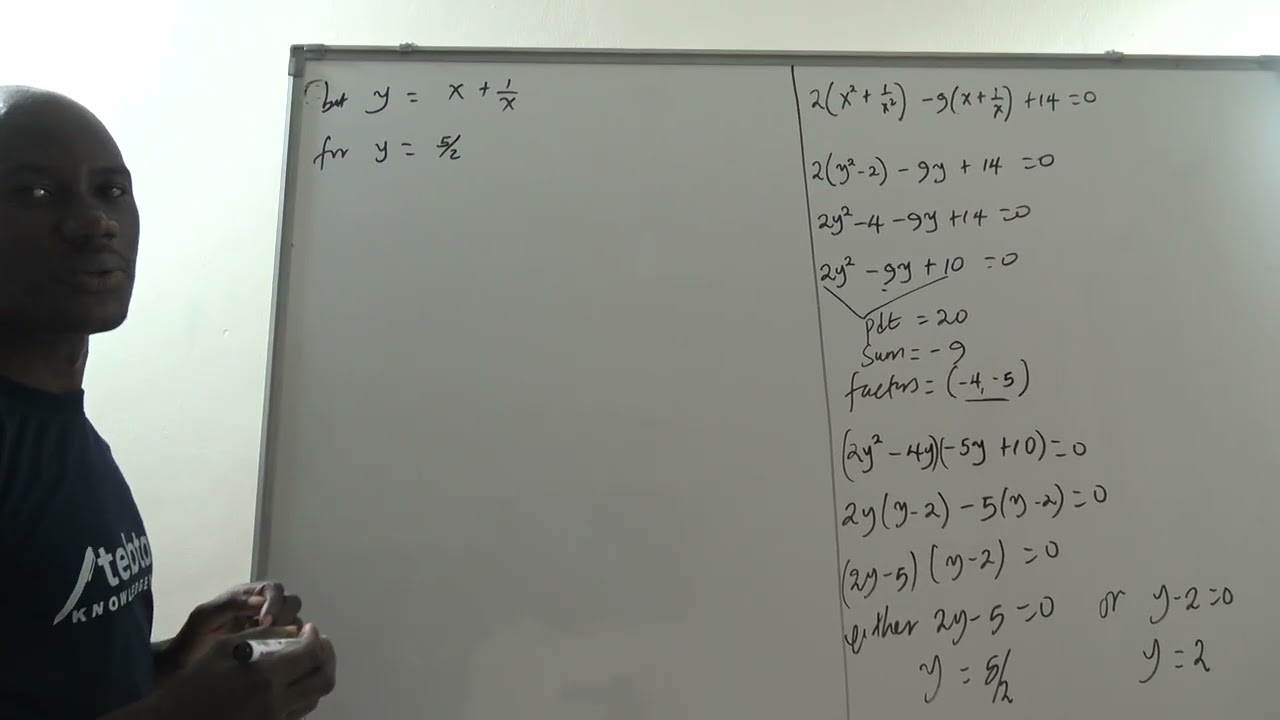 but y = x + 1/x
for y = 5/2
2(x² + 1/x²) - 9(x + 1/x) + 14 = 0
2(y² - 2) - 9y + 14 = 0
2y² - 4 - 9y + 14 = 0
2y² - 9y + 10 = 0
pdt = 20
Sum = - 9
factors = (-4, -5)
(2y² - 4y)(-5y + 10) = 0
2y(y - 2) - 5(y - 2) = 0
(2y - 5)(y - 2) = 0
either 2y - 5 = 0 or y - 2 = 0
y = 5/2 y = 2
tebta
KNOWLEDGE